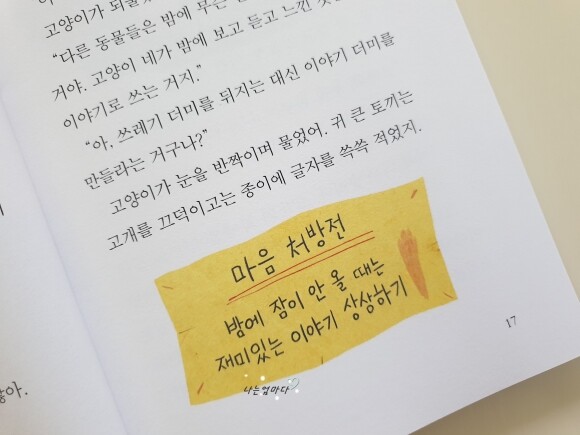 고양이가 되물었
“다른 동물들은 밤에 무슨
거야. 고양이 네가 밤에 보고 듣고 느낀
이야기로 쓰는 거지.”
“아, 쓰레기 더미를 뒤지는 대신 이야기 더미를
만들라는 거구나?”
고양이가 눈을 반짝이며 물었어. 귀 큰 토끼는
고개를 끄덕이고는 종이에 글자를 쓱쓱 적었지.
마음 처방전
밤에 잠이 안 올 때는
재미있는 이야기 상상하기
17
나는엄마다
않아.